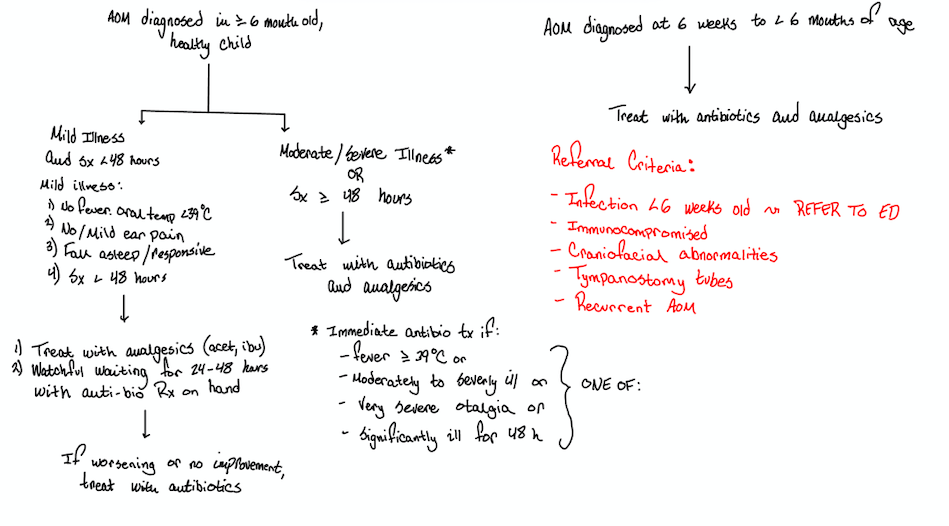 AOM diagnosed in ≥ 6 month old,
healthy child
Mild Illness
and Sx <48 hours
Mild illness:
1) No fever. Oral temp <39°C
2) No/Mild ear pain
3) Fall asleep/responsive
4) Sx < 48 hours
1) Treat with analgesics (acet, ibu)
2) Watchful waiting for 24-48 hours
with anti-bio Rx on hand
If worsening or no improvement,
treat with antibiotics
Moderate/Severe Illness*
OR
Sx ≥ 48 hours
Treat with antibiotics
and analgesics
* Immediate antibio tx if:
- fever ≥ 39°C or
- Moderately to severly ill or
- Very severe otalgia or
- Significantly ill for 48 h
ONE OF:
AOM diagnosed at 6 weeks to <6 months of age
Treat with antibiotics and analgesics
Referral Criteria:
- Infection <6 weeks old ~ REFER TO ED
- Immunocompromised
- Craniofacial abnormalities
- Tympanostomy tubes
- Recurrent AOM